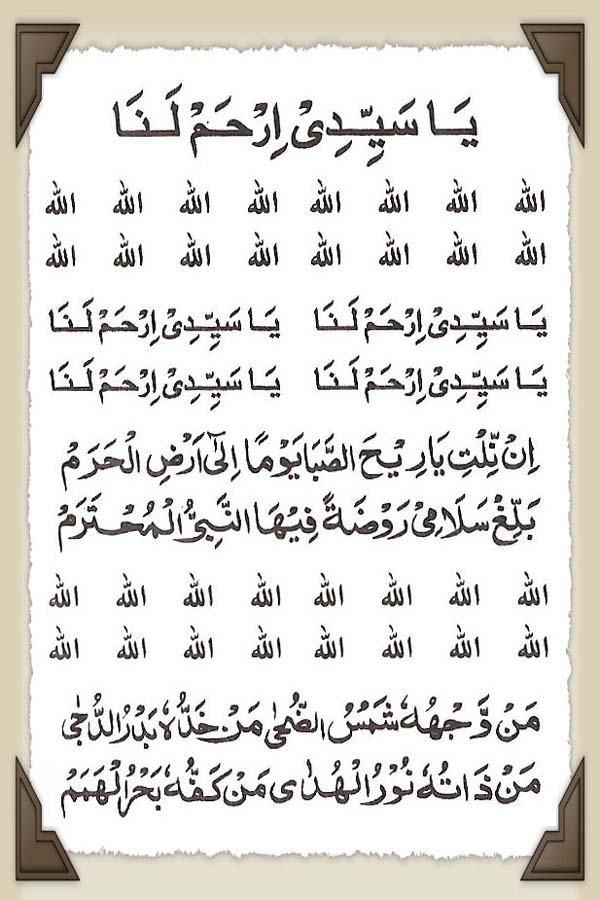 يَا سَيِّدِيْ اِرْحَمْ لَنَا
الله الله الله الله الله الله الله الله
الله الله الله الله الله الله الله الله
يَا سَيِّدِيْ اِرْحَمْ لَنَا يَا سَيِّدِيْ اِرْحَمْ لَنَا
يَا سَيِّدِيْ اِرْحَمْ لَنَا يَا سَيِّدِيْ اِرْحَمْ لَنَا
اِنْ نِّلْتِ يَا رِيْحَ الصَّبَا يَوْمًا اِلٰٓى اَرْضِ الْحَرَمْ
بَلِّغْ سَلَامِيْ رَوْضَةً فِيْهَا النَّبِيُّ الْمُحْتَرَمْ
الله الله الله الله الله الله الله الله
الله الله الله الله الله الله الله الله
مَنْ وَّجْهُهٗ شَمْسُ الضُّحٰى مَنْ خَدُّهٗ بَدْرُ الدُّجٰى
مَنْ ذَاتُهٗ نُوْرُ الْهُدٰى مَنْ كَفُّهٗ بَحْرُ الْهَمَمْ